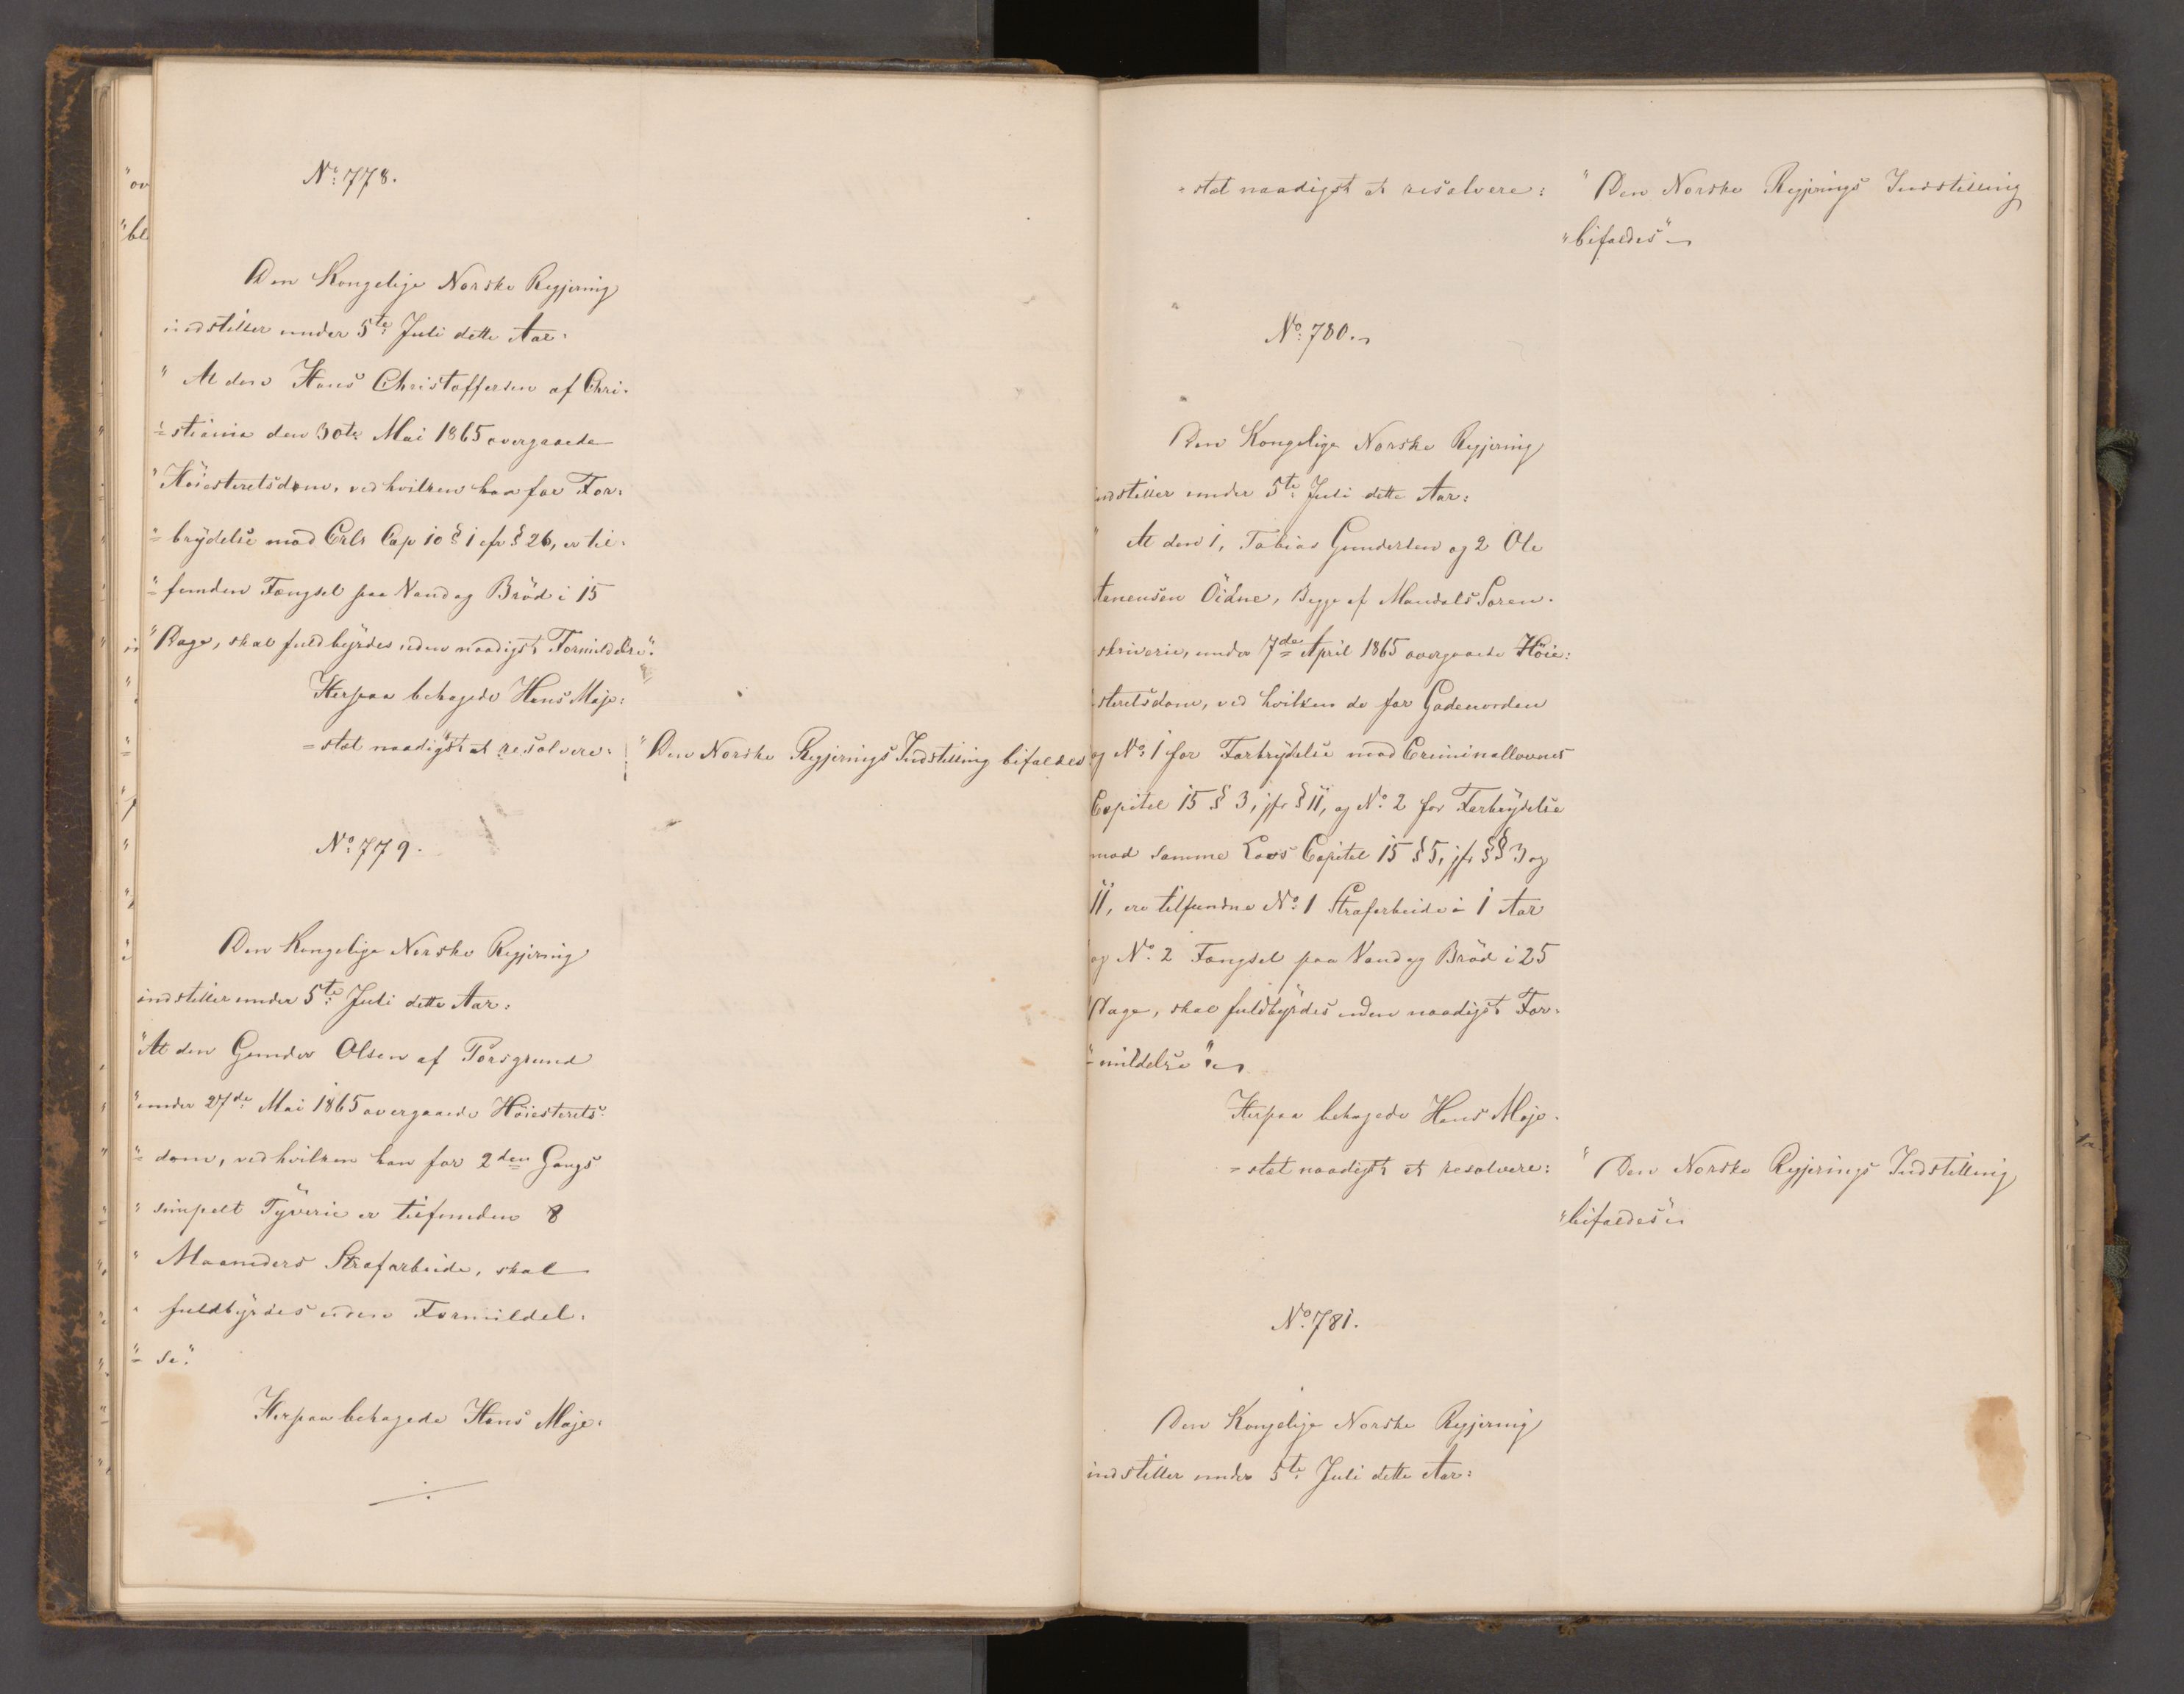 No: 778.
Den Kongelige Norske Regjering
indstiller under 5te Juli dette Aar:
"At den Hans Christoffersen af Chri-
"=stiania den 30te Mai 1865 overgaaede
"Höiesteretsdom, ved hvilken han for For:
"=brydelse mod Crls Cap 10 § 1 cfr § 26, er til-
"=funden Fængsel paa Vand og Bröd i 15
"Dage, skal fuldbyrdes uden naadigst Formildelse".
Herpaa behagede Hans Maje:
=stæt naadigst at resolvere: "Den Norske Regjerings Indstilling bifaldes
No: 779.
Den Kongelige Norske Regjering
indstiller under 5te Juli dette Aar:
"At den Gunder Olsen af Porsgrund
"under 27de Mai 1865 overgaaede Höiesterets-
"=dom, ved hvilken han for 2den Gangs
"simpelt Tyverie er tilfunden 8
"Maaneders Strafarbeide, skal
"fuldbyrdes uden Formildel-
"=se."
Herpaa behagede Hans Maje:
=stæt naadigst at resolvere: "Den Norske Regjerings Indstilling
"bifaldes"
No: 780.
Den Kongelige Norske Regjering
indstiller under 5te Juli dette Aar:
"At den 1, Tobias Gundersen og 2 Ole
Öidne, Begge af Mandals Soren-
skriverie, under 7de April 1865 overgaaede Höie:
steretsdom, ved hvilken de for Gadeuorden
og No: 1 for Forbrydelse mod Criminallovens
Capitel 15 § 3, jfr § 11, og No: 2 for Forbrydelse
mod samme Lovs Capitel 15 § 5, jfr §§ 3 og
11, ere tilfundne No: 1 Strafarbeide i 1 Aar
og No: 2 Fængsel paa Vand og Bröd i 25
Dage, skal fuldbyrdes uden naadigst For-
"=mildelse"
Herpaa behagede Hans Maje-
=stæt naadigst at resolvere: "Den Norske Regjerings Indstilling
"bifaldes"
No: 781.
Den Kongelige Norske Regjering
indstiller under 5te Juli dette Aar: